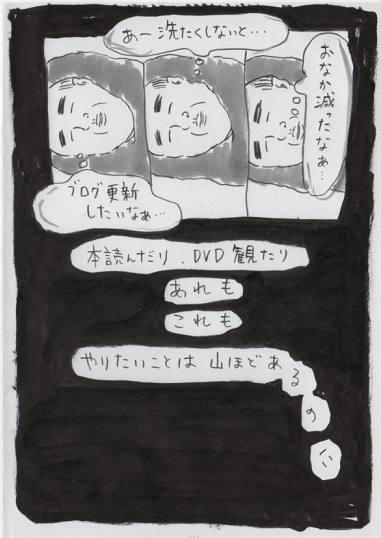 あー洗たくしないと…
おなか減ったなぁ…
ブログ更新
したいなぁ…
本読んだり、DVD観たり
あれも
これも
やりたいことは山ほどあるのに